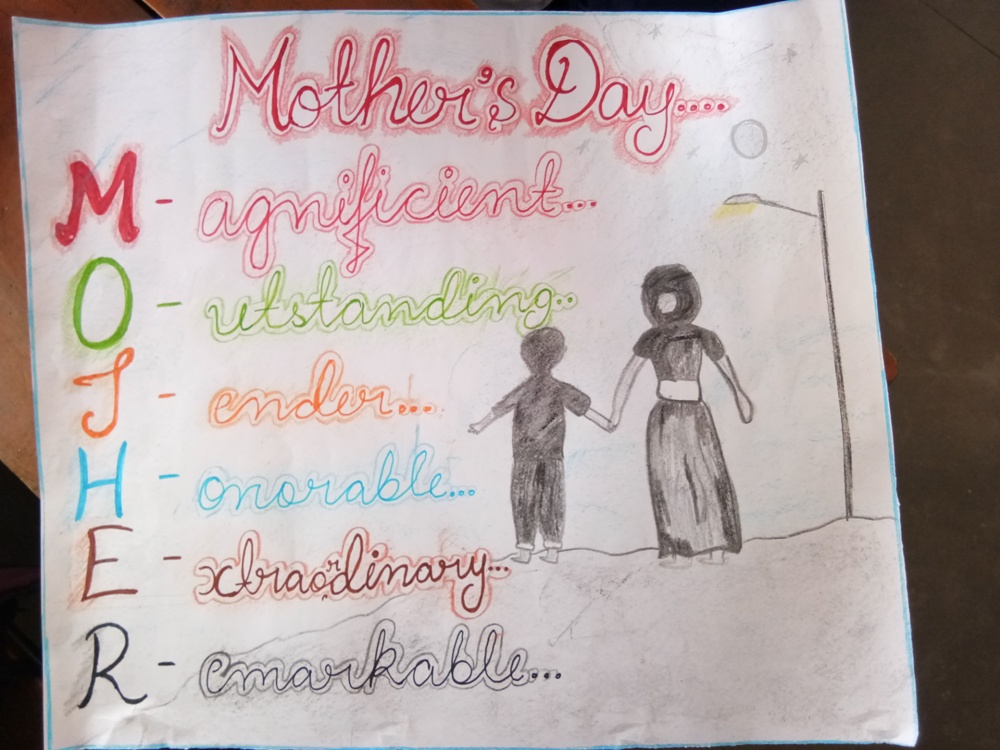 Mother's Day....
M - agnificient...
O - utstanding..
T - ender...
H - onorable...
E - xtraordinary...
R - emarkable...